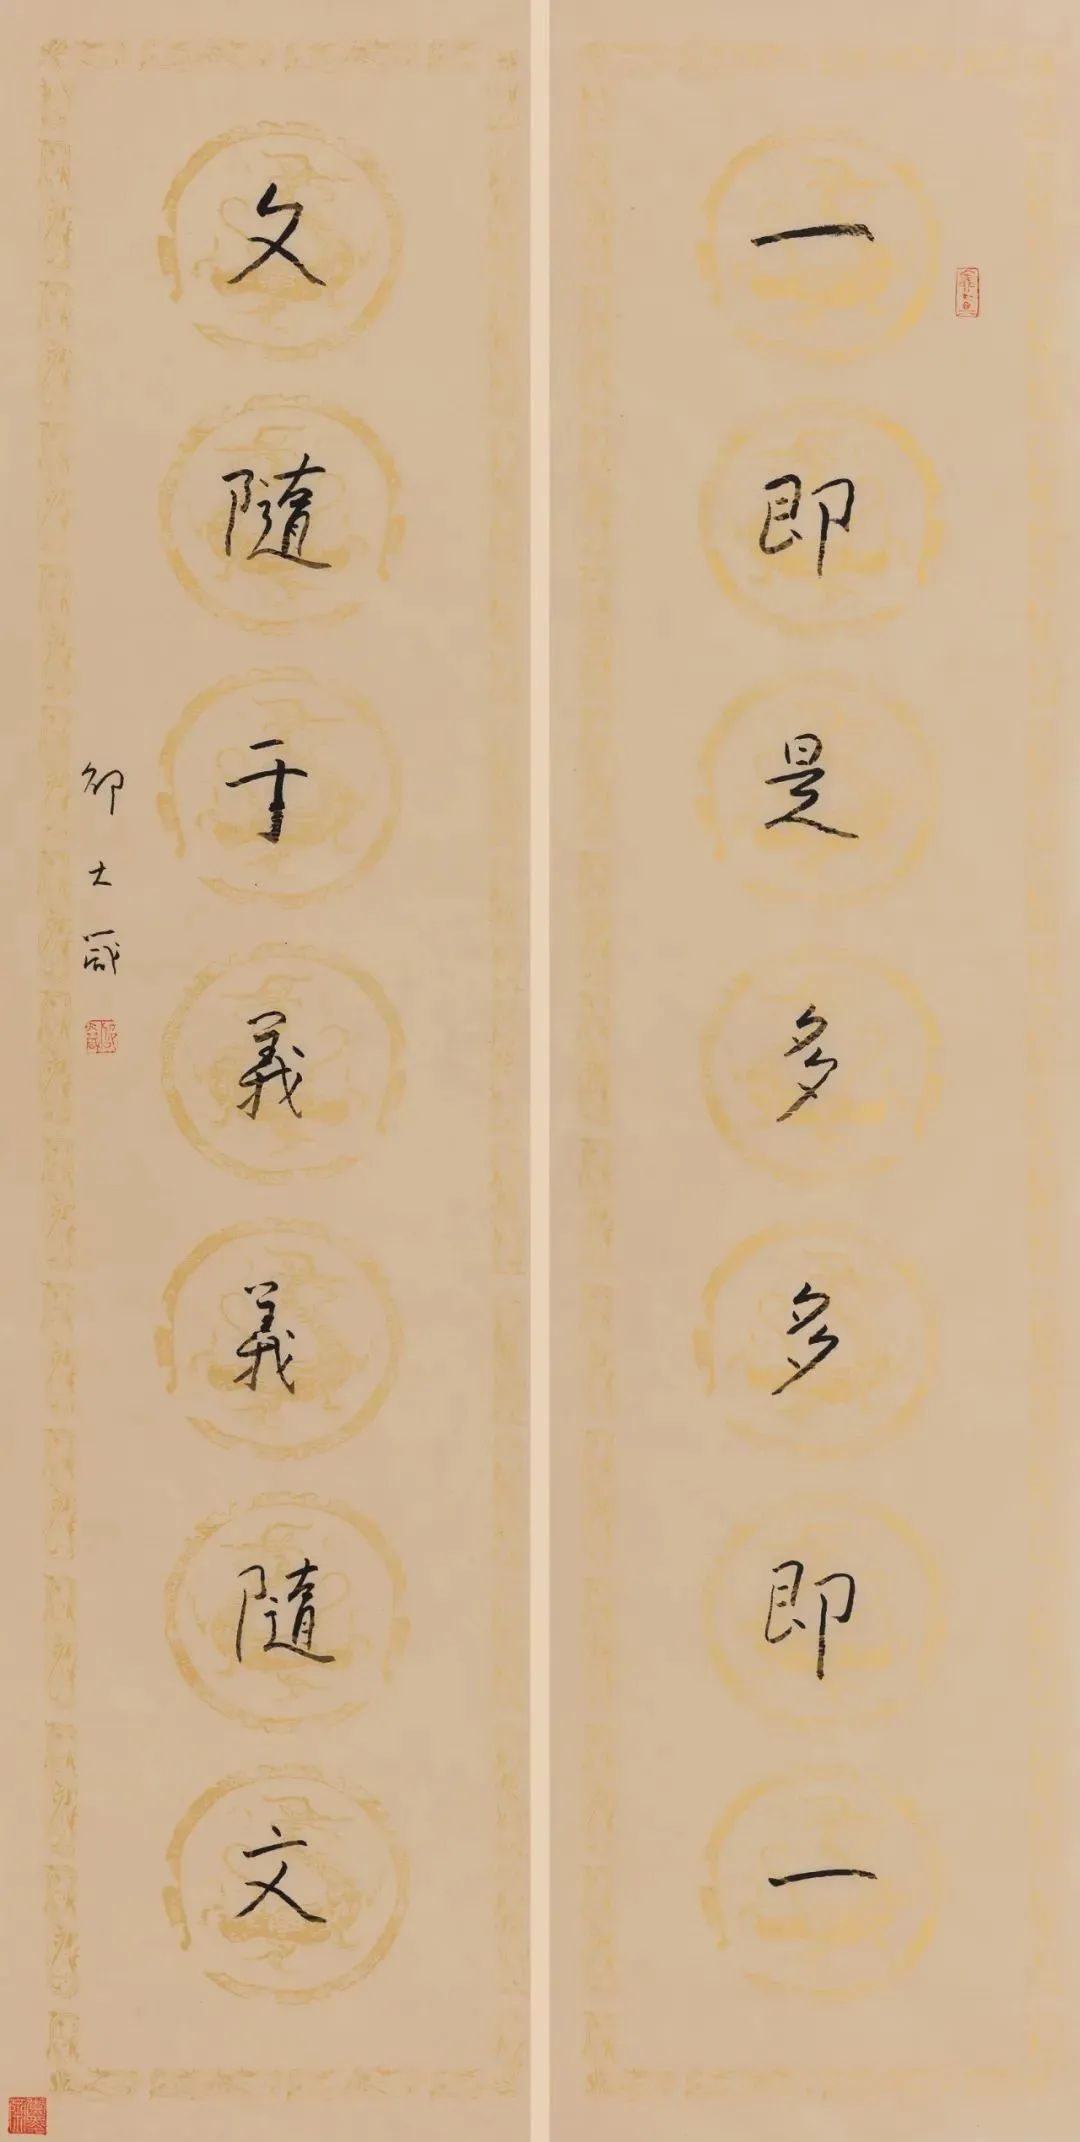 一即是多多即一
文隨于義義隨文
邵大箴